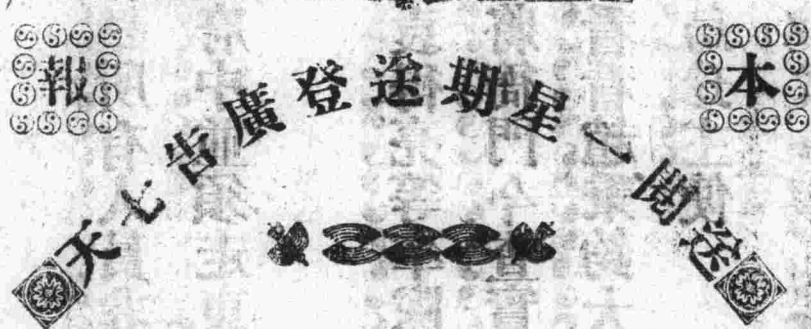 本報
送閱一星期送登廣告七天